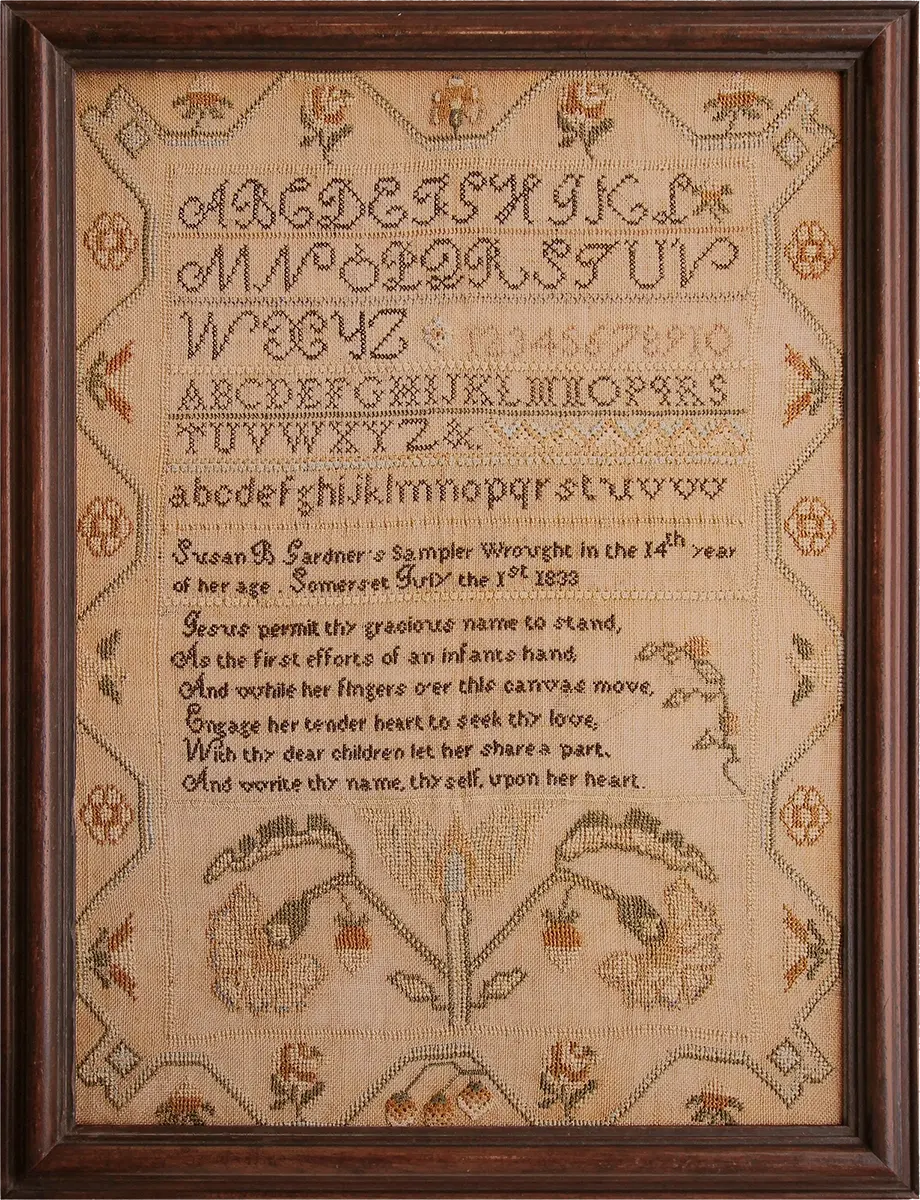 ABCDEFGHIKL
MNOPQRSTUV
WXYZ 12345678910
ABCDEFGHIJKLMNOPQRS
TUVWXYZ&.
abcdefghijklmnopqrstuvw
Susan B Gardner's Sampler Wrought in the 14th year
of her age . Somerset July the 1st 1833
Jesus permit thy gracious name to stand,
As the first efforts of an infants hand;
And while her fingers o'er this canvas move,
Engage her tender heart to seek thy love;
With thy dear children let her share a part,
And write thy name, thy self, upon her heart.